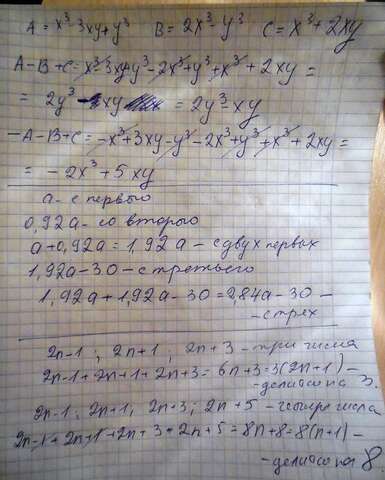 A = x³-3xy+y³ B = 2x³-y³ C = x³+2xy
A-B+C = x³-3xy+y³-2x³+y³+x³+2xy =
= 2y³-xy = 2y³-xy
-A-B+C = -x³+3xy-y³-2x³+y³+x³+2xy =
= -2x³+5xy
a - с первого
0,92a - со второго
a+0,92a = 1,92a - с двух первых
1,92a-30 - с третьего
1,92a+1,92a-30 = 2,84a-30 -
- с трех
2n-1 ; 2n+1 ; 2n+3 - три числа
2n-1+2n+1+2n+3 = 6n+3 = 3(2n+1) -
- делится на 3.
2n-1; 2n+1; 2n+3; 2n+5 - четыре числа
2n-1+2n+1+2n+3+2n+5 = 8n+8 = 8(n+1) -
- делится на 8